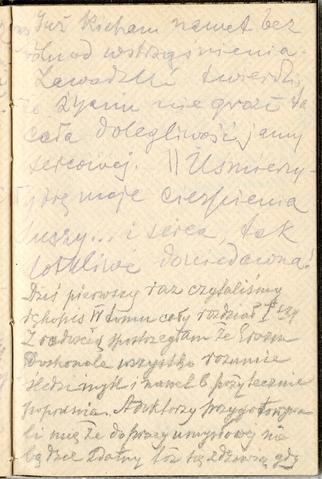 Już kicham nawet bez
żadnego wstrząśnienia.
Zawadzki twierdzi,
że życiu nie grozi ta
cała dolegliwość jamy
sercowej. || Uśmierzy-
moje cierpienia
duszy... i serca, tak
dotkliwe dawiedawna!
Dziś pierwszy raz czytaliśmy
rękopis W tomu cały rozdział I szy
Z radością spostrzegłam że Erazm
Doskonale wszystko rozumie
śledzi myśl i nawet pożytecznie
poprawia. A doktorzy przygotowywa
li mię że do pracy umysłowej nie
będzie zdatny toż się zdziwią gdy